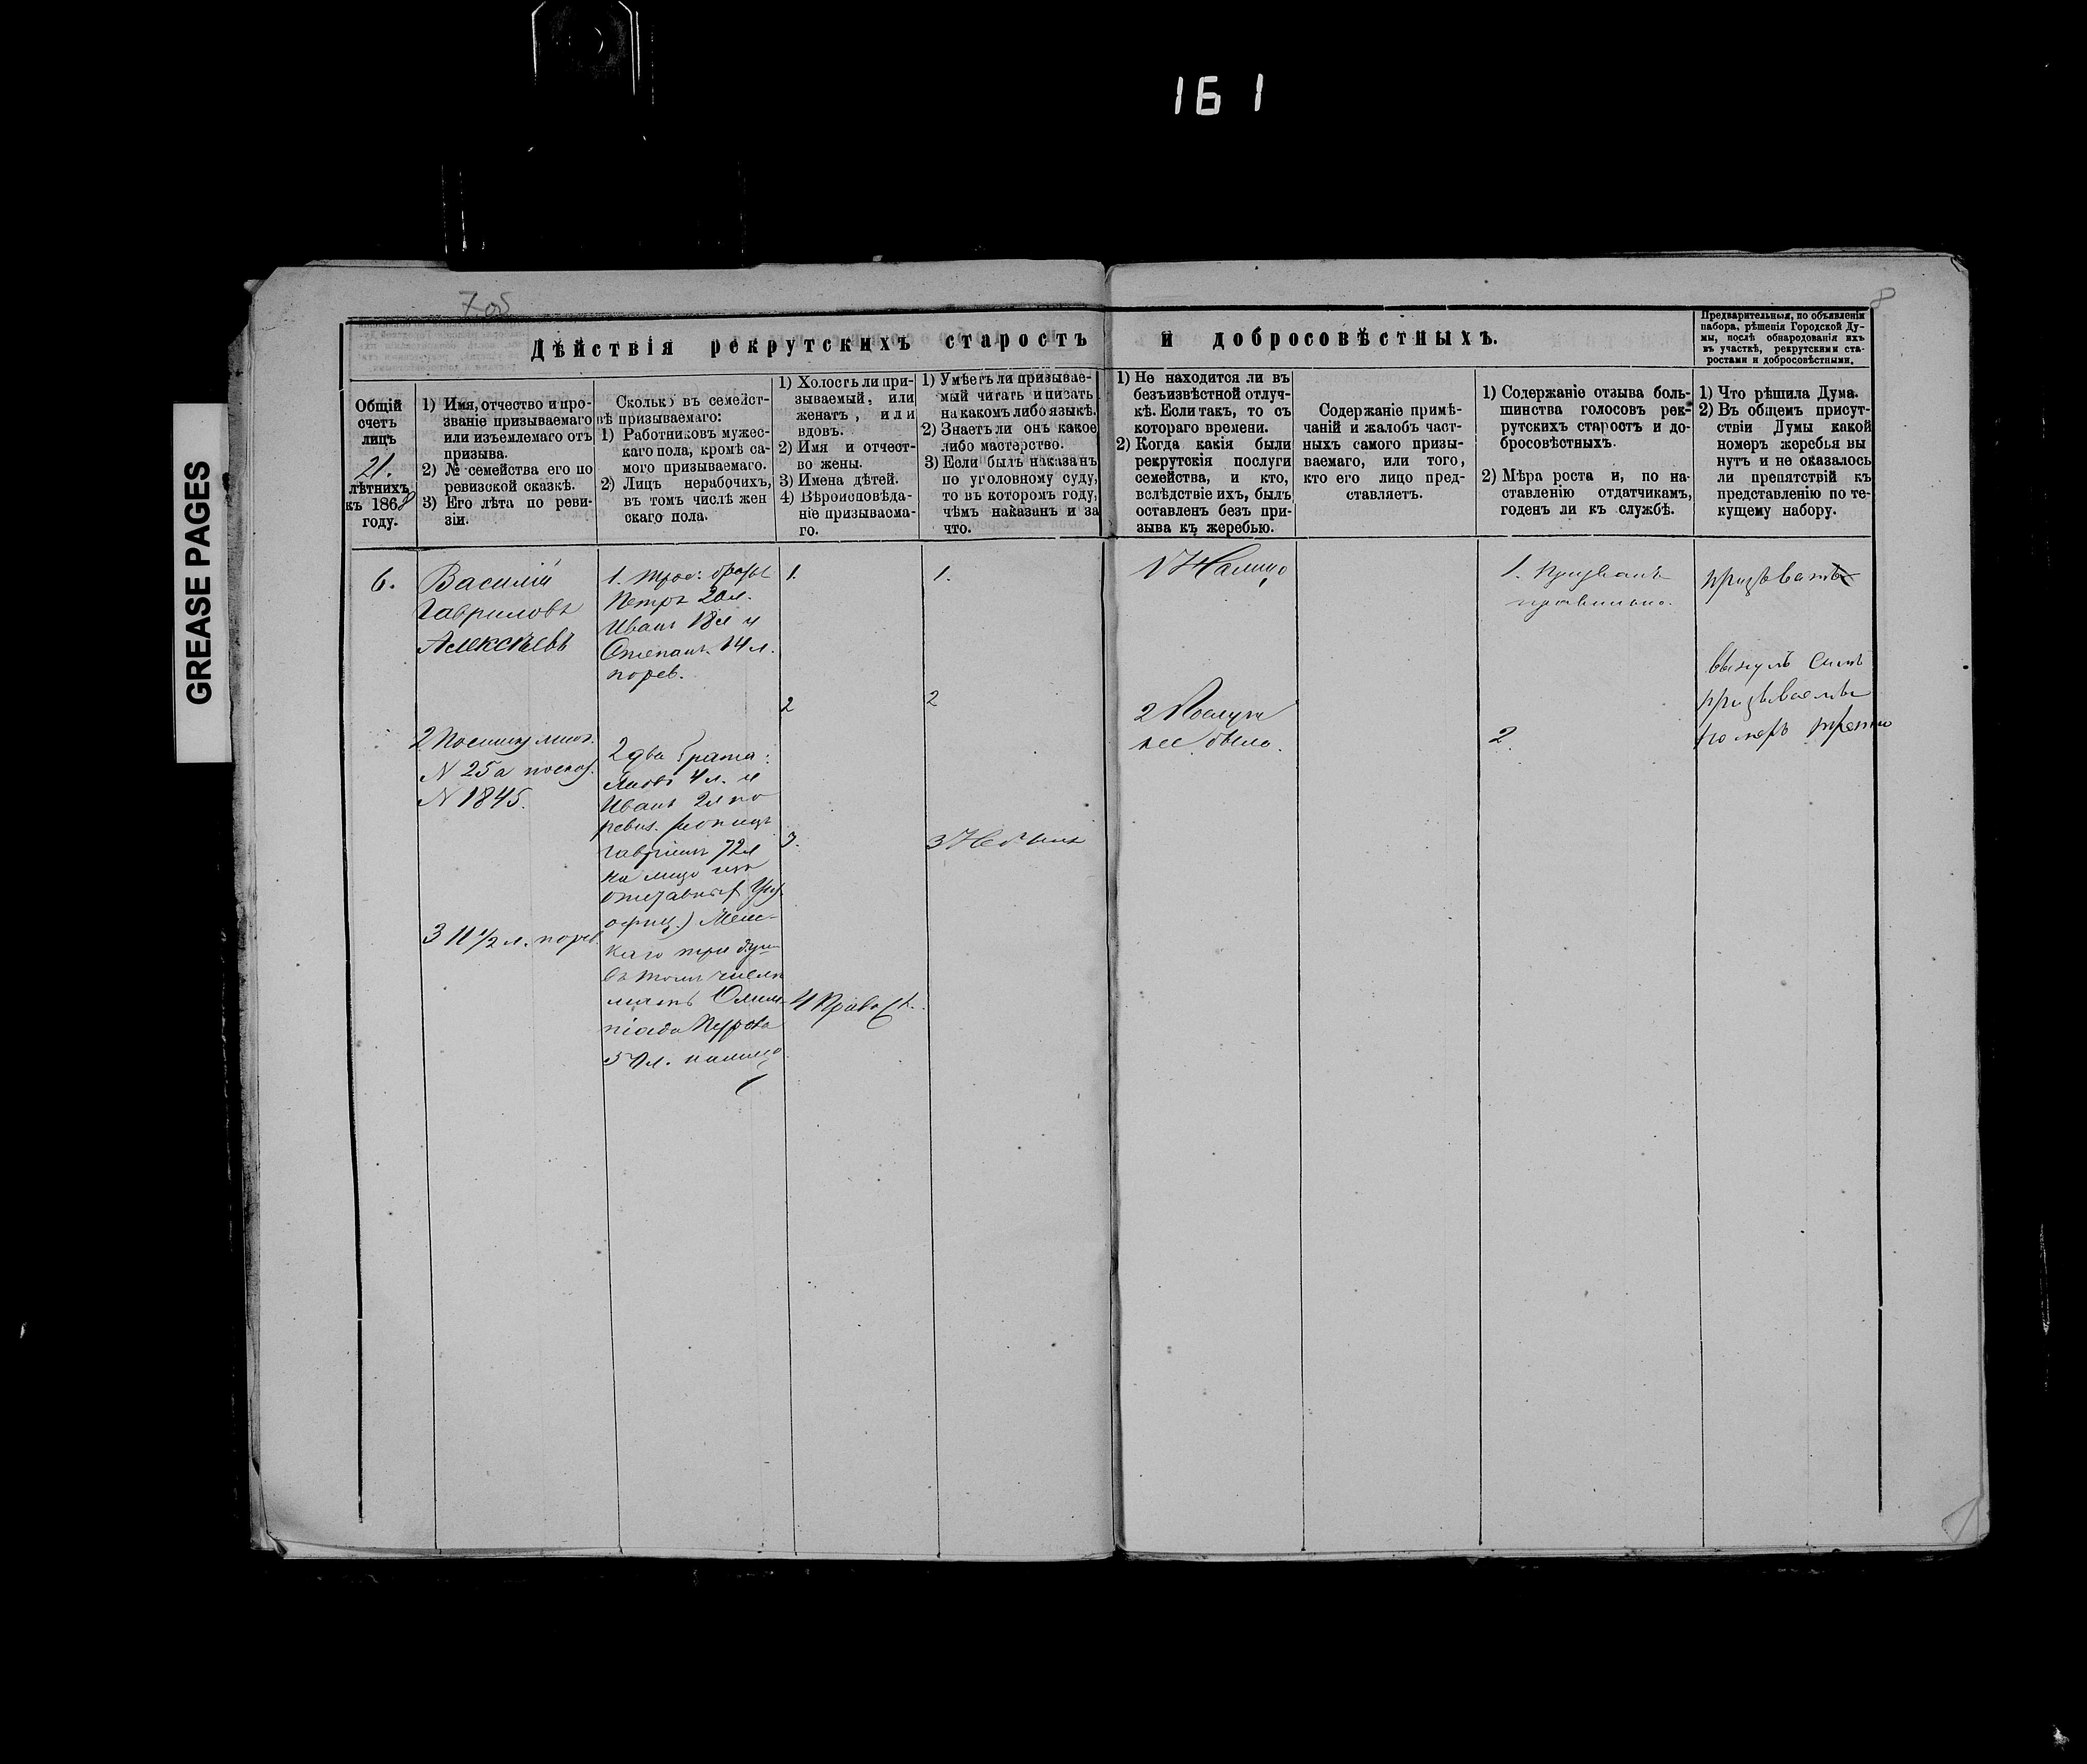 161
GREASE PAGES
7 об
8
Дѣйствія рекрутскихъ старостъ и добросовѣстныхъ.
Предварительныя, по объявленіи
набора, рѣшенія Городской Ду-
мы, послѣ обнародованія ихъ
въ участкѣ, рекрутскими ста-
ростами и добросовѣстными.
Общій
счетъ
лицъ
21.
лѣтнихъ
къ 1868
году.
1) Имя, отчество и про-
званіе призываемаго
или изъемлемаго отъ
призыва.
2) № семейства его по
ревизской сказкѣ.
3) Его лѣта по реви-
зіи.
Сколько въ семейст-
вѣ призываемаго:
1) Работниковъ мужес-
каго пола, кромѣ са-
мого призываемаго.
2) Лицъ нерабочихъ,
въ томъ числѣ жен
скаго пола.
1) Холостъ ли при-
зываемый, или
женатъ, или
вдовъ.
2) Имя и отчест-
во жены.
3) Имена дѣтей.
4) Вѣроисповѣда-
ніе призываема-
го.
1) Умѣетъ ли призывае-
мый читать и писать
на какомъ либо языкѣ.
2) Знаетъ ли онъ какое
либо мастерство.
3) Если былъ наказанъ
по уголовному суду,
то въ которомъ году,
чѣмъ наказанъ и за
что.
1) Не находится ли въ
безъизвѣстной отлуч-
кѣ. Если такъ, то съ
котораго времени.
2) Когда какія были
рекрутскія послуги
семейства, и кто,
вслѣдствіе ихъ, былъ
оставленъ безъ при-
зыва къ жеребью.
Содержаніе примѣ-
чаній и жалобъ част-
ныхъ самого призы-
ваемаго, или того,
кто его лицо пред-
ставляетъ.
1) Содержаніе отзыва боль-
шинства голосовъ рек-
рутскихъ старостъ и до-
бросовѣстныхъ.
2) Мѣра роста и, по на-
ставленію отдатчикамъ,
годенъ ли къ службѣ.
1) Что рѣшила Дума.
2) Въ общемъ присут-
ствіи Думы какой
номеръ жеребья вы
нутъ и не оказалось
ли препятствій къ
представленію по те-
кущему набору.
6.
Василій
Гавриловъ
Алексѣевъ
2 
N 25 а по сказ.
N 1845.
3 11 1/2 л. порев.
1. Трое: братьевъ
Петръ 20 л.
Иванъ 18 л и
Степанъ 14 л.
порев.
2 два брата:
Яковъ 4 л. и
Иванъ 2 л по
ревиз.
72 л
на лицо изъ
офиц.) Женс-
каго три души
въ томъ числѣ
мать Олим-
піада
л. налицо
1.
2
3.
4 Правосл.
1.
2
3 Не былъ
1 Налицо
2 Послуги
не было.
1. Призванъ
правильно.
2.
призвать
вынулъ самъ
призываемый
номеръ третій